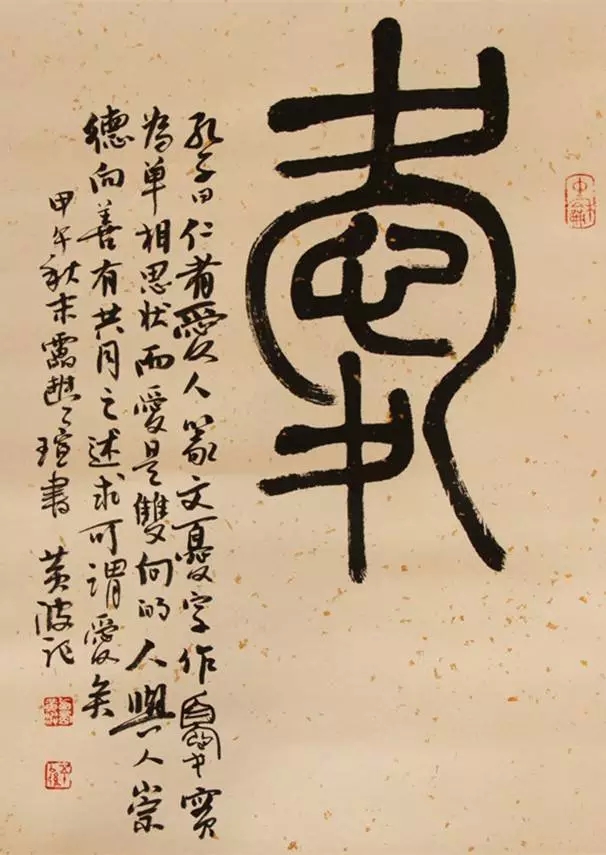 愛
孔子曰仁者愛人篆文憂字作實
為单相思状而愛是雙向的人與人崇
德向善有共同之述求可謂愛矣
甲午秋末瑄書 黄波記